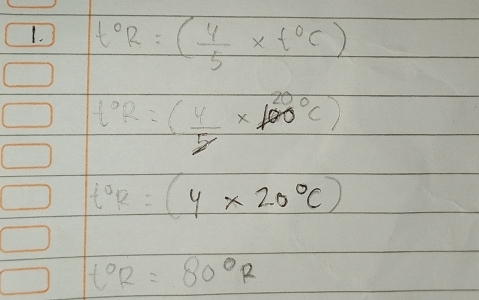 1. t°R = (4/5 × t°C)
t°R = (4/5 × 100 20°C)
t°R = (4 × 20°C)
t°R = 80°R